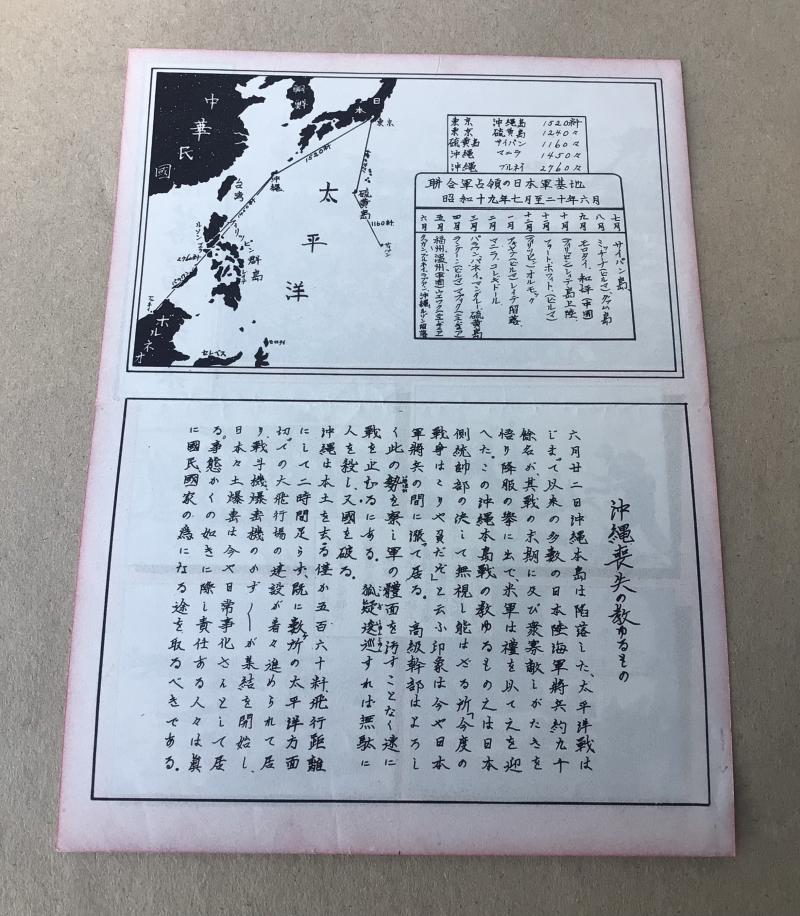 中華民國
朝鮮
日本
東京
太平洋
台湾
沖縄
硫黄島
サイパン
1520粁
1160粁
2760
フィリッピン群島
ルソン
ボルネオ
セレベス
モロタイ
東京 沖縄島 1520粁
東京 硫黄島 1240々
硫黄島 サイパン 1160々
沖縄 マニラ 1450々
沖縄 ブルネイ 2760々
聯合軍占領の日本軍基地
昭和十九年七月至二十年六月
七月 サイパン島、
八月 ミッチーナ(ビルマ)グアム島
九月 モロタイ、和坪(中國)
十月 (フィリッピン)レイテ島上陸
十一月 フォート・ホワイト、(ビルマ)
十二月 (フィリッピン)オルモック
一月 アキヤブ(ビルマ)レイテ陥落
二月 マニラ、コレヒドール
三月 パラワン、パネイ、マンダレー、硫黄島
四月 ラングーン(ビルマ)
五月 福州、温州(中國)ウエワク
六月 ブルネイ、ラブアン、沖縄、ルソン陥落
沖縄喪失の教ゆるもの
六月廿二日沖縄本島は陥落した、太平洋戦は
じまって以来の多数の日本陸海軍将兵約九千
餘名が、其戦の末期に及び衆寡敵しがたきを
悟り降服の挙に出て、米軍は禮を以て之を迎
へた。この沖縄本島戦の教ゆるもの之は日本
側統帥部の決して無視し能はざる所「今度の
戦争はくりや負だぞ」と云ふ印象は今や日本
軍将兵の間に漲って居る。高級幹部はよろし
く此の勢を察し軍の體面を汚すことなく速に
戦を止むるにある。狐疑逡巡すれば無駄に
人を殺し、又國を破る。
沖縄は本土を去る僅か五百六十粁、飛行距離
にして二時間足らず、既に数ヶ所の太平洋方面
切っての大飛行場の建設が着々進められて居
り、戦斗機爆撃機のかず〱が集結を開始し、
日本々土爆撃は今や日常事化さえんとして居
る。事態かくの如きに際し責任ある人々は真
に國民、國家の為になる途を取るべきである。